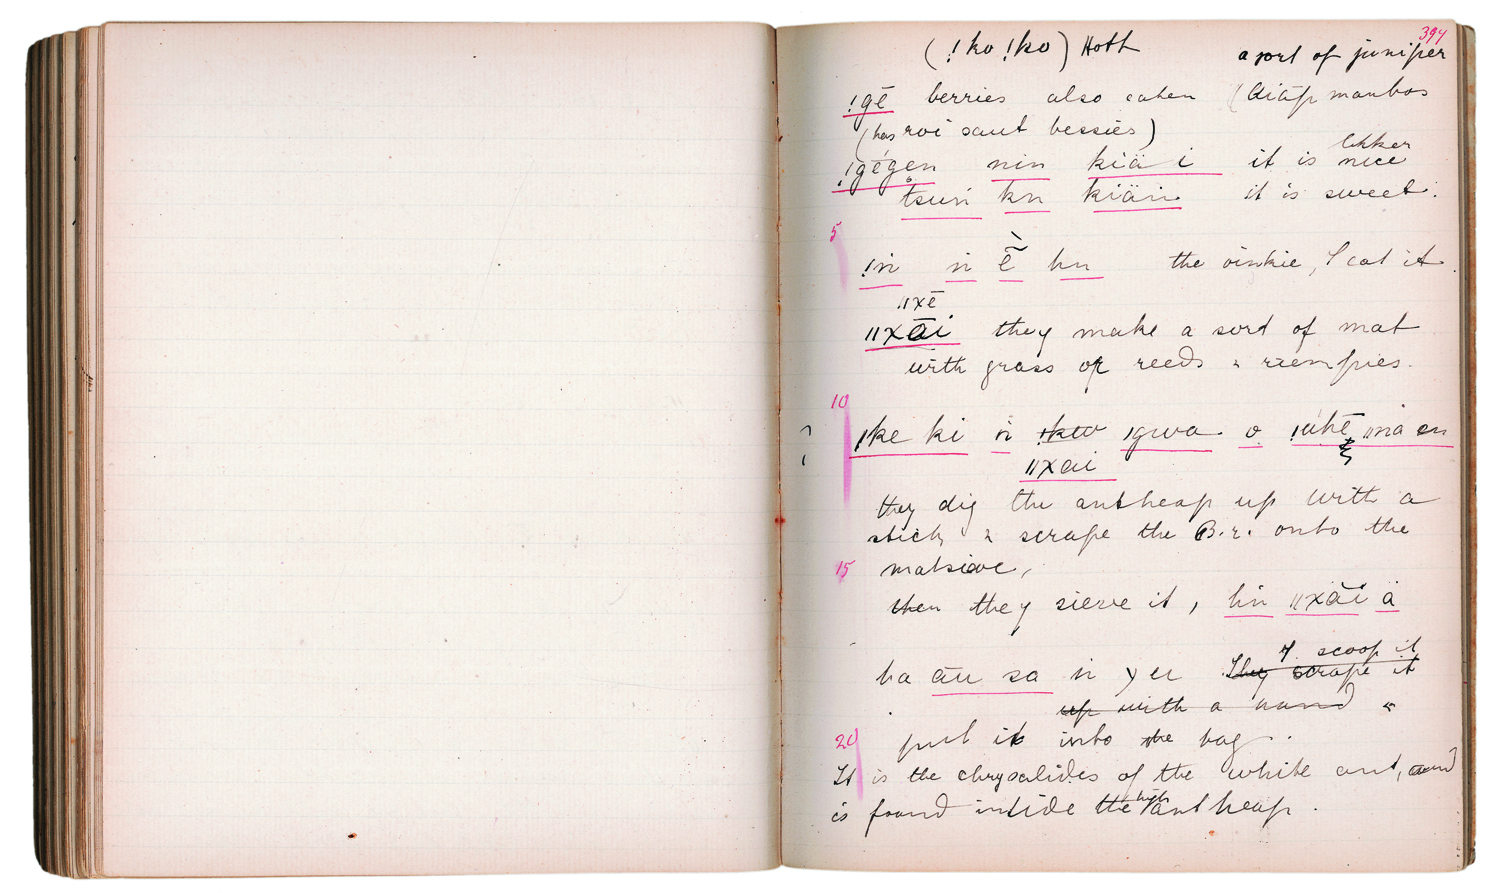 394
(!ko !ko) Hott a sort of juniper
!gē berries also eaten (diāp manbos
(has roi sant bessies)
lekker
!gēgen nin kiä i it is nice
tsuń kn kiäin it is sweet.
5
!ń ń ē hn the oinkie, I eat it
ǁxē
ǁxāi they make a sort of mat
with grass or reeds & riempies.
10
!ke ki ń !kw !gwa o !uhē ǁna en
ǁxai
they dig the antheap up with a
stick & scrape the B.r. onto the
15 matsieve,
then they sieve it, hń ǁxāi ä
I scoop it
ha āu sa ń yeu They scrape it
up with a hand &
20 put it into the bag.
It is the chrysalides of the white ant, and
high
is found inside the ant heap.